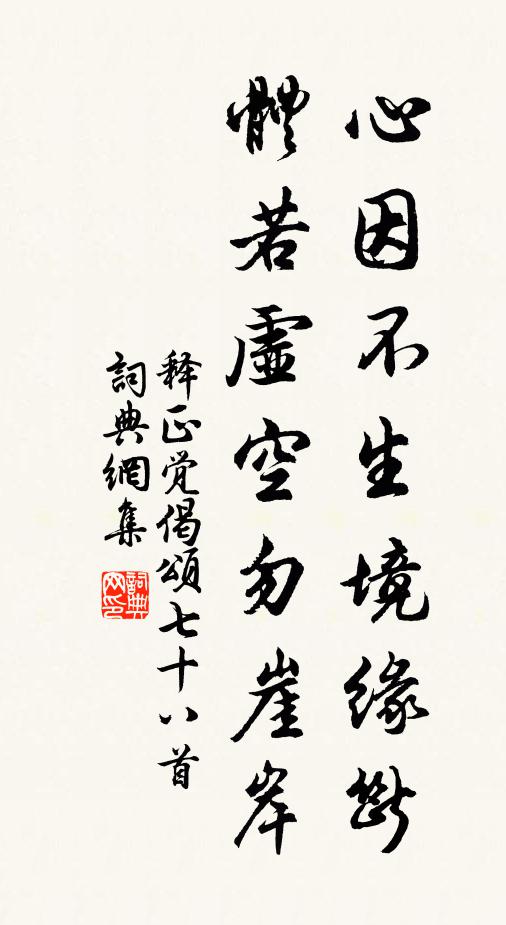 心因不生境缘断
體若虛空勿崖岸
释正觉偈頌七十八首
詞典網集
詞典网印